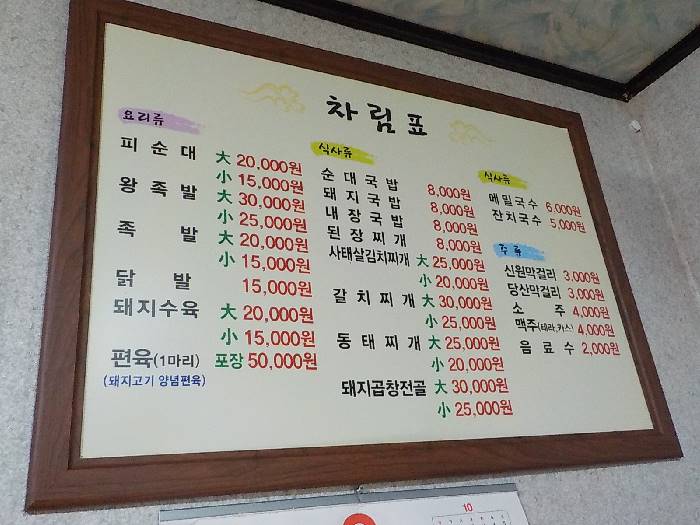 차림표
요리류
피순대 大 20,000원
小 15,000원
왕족발 大 30,000원
小 25,000원
족발 大 20,000원
小 15,000원
닭발 15,000원
돼지수육 大 20,000원
小 15,000원
편육(1마리) 포장 50,000원
(돼지고기 양념편육)
식사류
순대국밥 8,000원
돼지국밥 8,000원
내장국밥 8,000원
된장찌개 8,000원
사태살김치찌개 大 25,000원
小 20,000원
갈치찌개 大 30,000원
小 25,000원
동태찌개 大 25,000원
小 20,000원
돼지곱창전골 大 30,000원
小 25,000원
식사류
메밀국수 6,000원
잔치국수 5,000원
주류
신원막걸리 3,000원
당산막걸리 3,000원
소주 4,000원
맥주(테라,카스) 4,000원
음료수 2,000원
10